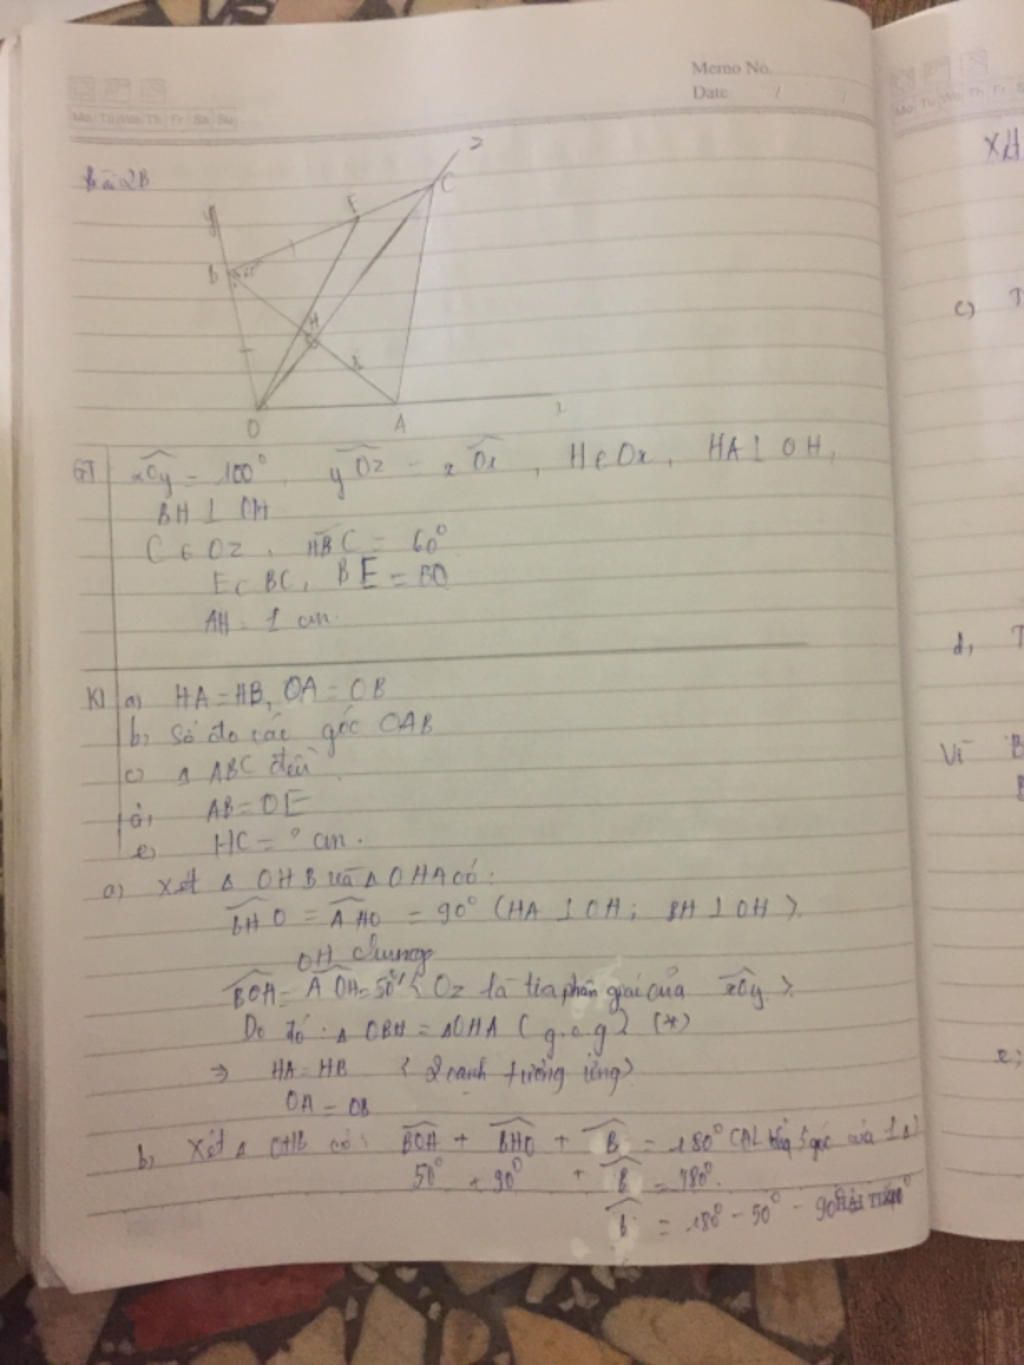 Memo No.
Date / /
Mo Tu We Th Fr Sa Su
Mo Tu We Th Fr S
Bài 2B
z
C
E
y
B
60°
H
1
O
A
x
GT
xOy = 100°, yOz = zOx, H ∈ Oz, HA ⊥ OH,
BH ⊥ OH
C ∈ Oz, HBC = 60°
E ∈ BC, BE = BO
AH = 1 cm.
Kl
a) HA = HB, OA = OB
b, Số đo các góc OAB
c) Δ ABC đều
d, AB = OE
e, HC = ? cm.
a) Xét Δ OHB và Δ OHA có:
BHO = AHO = 90° (HA ⊥ OH; BH ⊥ OH)
OH chung
BOH = AOH = 50° (Oz là tia phân giác của xOy)
Do đó: Δ OBH = Δ OHA (g.c.g) (*)
=> HA = HB (2 cạnh tương ứng)
OA = OB
b, Xét Δ OHB có: BOH + BHO + B = 180° (ĐL tổng 3 góc của 1 Δ)
50° + 90° + B = 180°.
B = 180° - 50° - 90°
XH
c) T
d, T
Vì B
B
e,